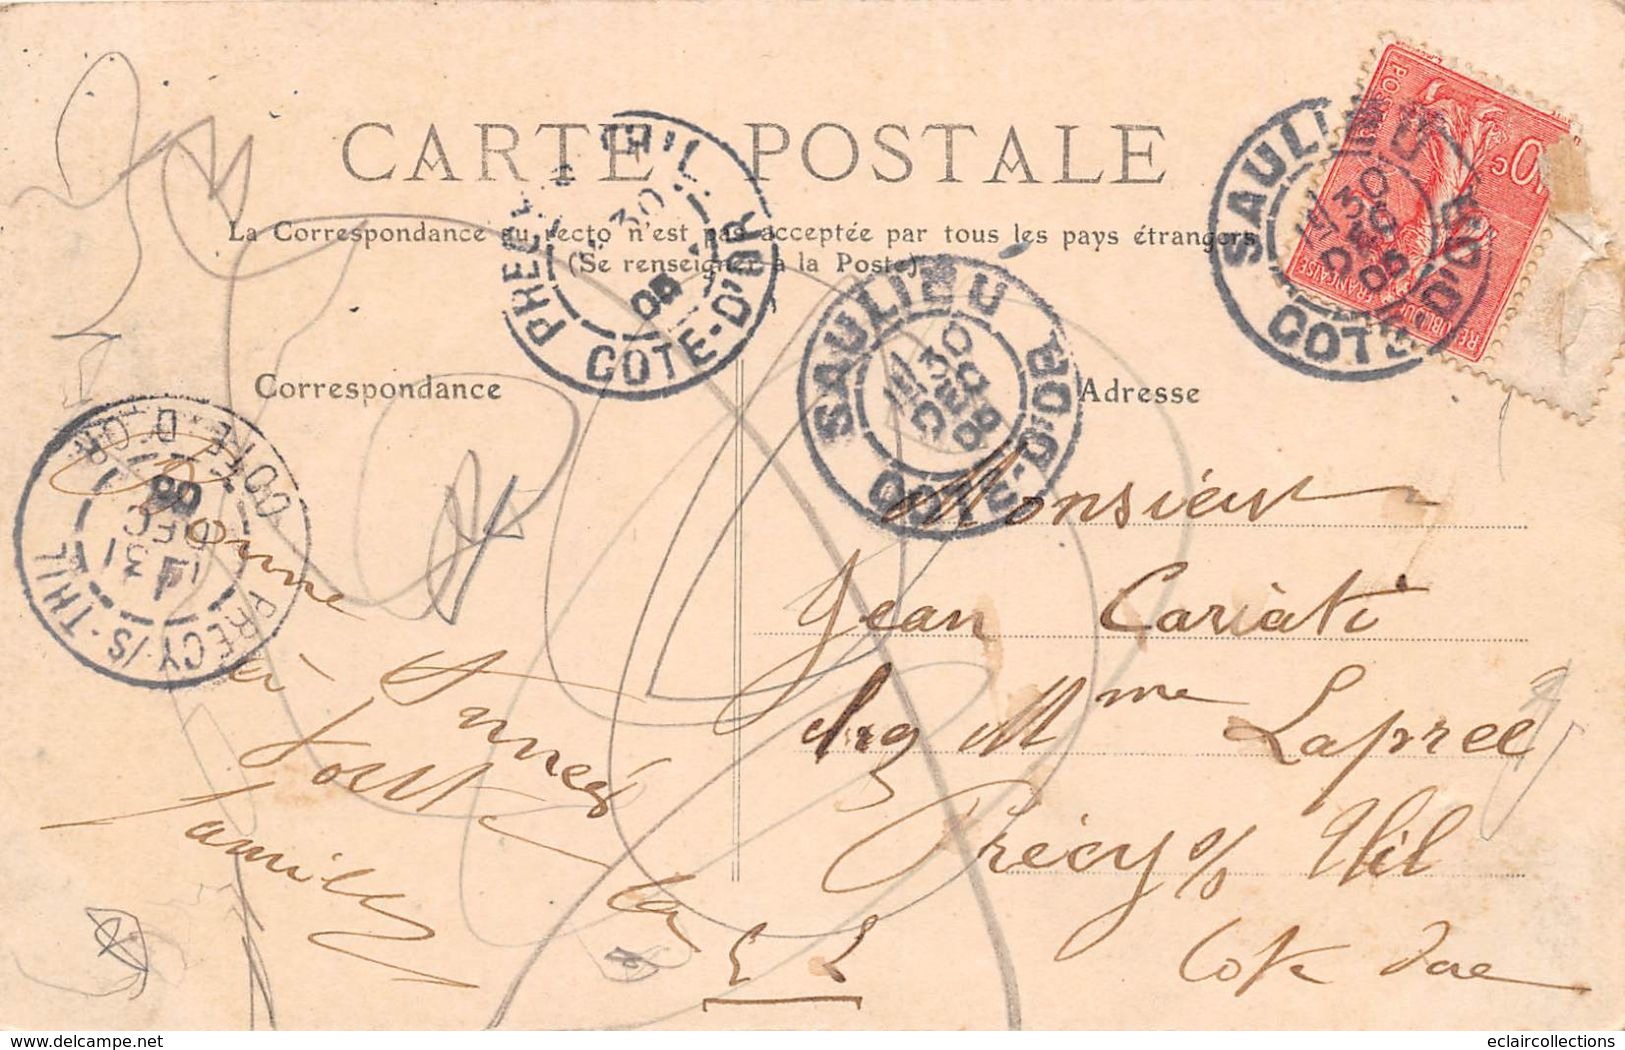 CARTE POSTALE
La Correspondance au recto n'est pas acceptée par tous les pays étrangers
(Se renseigner à la Poste)
Correspondance
Adresse
SAULIEU
30
DEC
05
COTE-D'OR
SAULIEU
30
DEC
05
COTE-D'OR
THIL
30
05
COTE-D'OR
PRECY-/S-THIL
31
DEC
05
COTE-D'OR
10c
POSTES
REPUBLIQUE FRANÇAISE
Bonne Année
à toute la
famille
Monsieur
Jean Cariati
chez Mme Laprée
Précy s/ Thil
Cote d'or
delcampe.net
eclaircollections